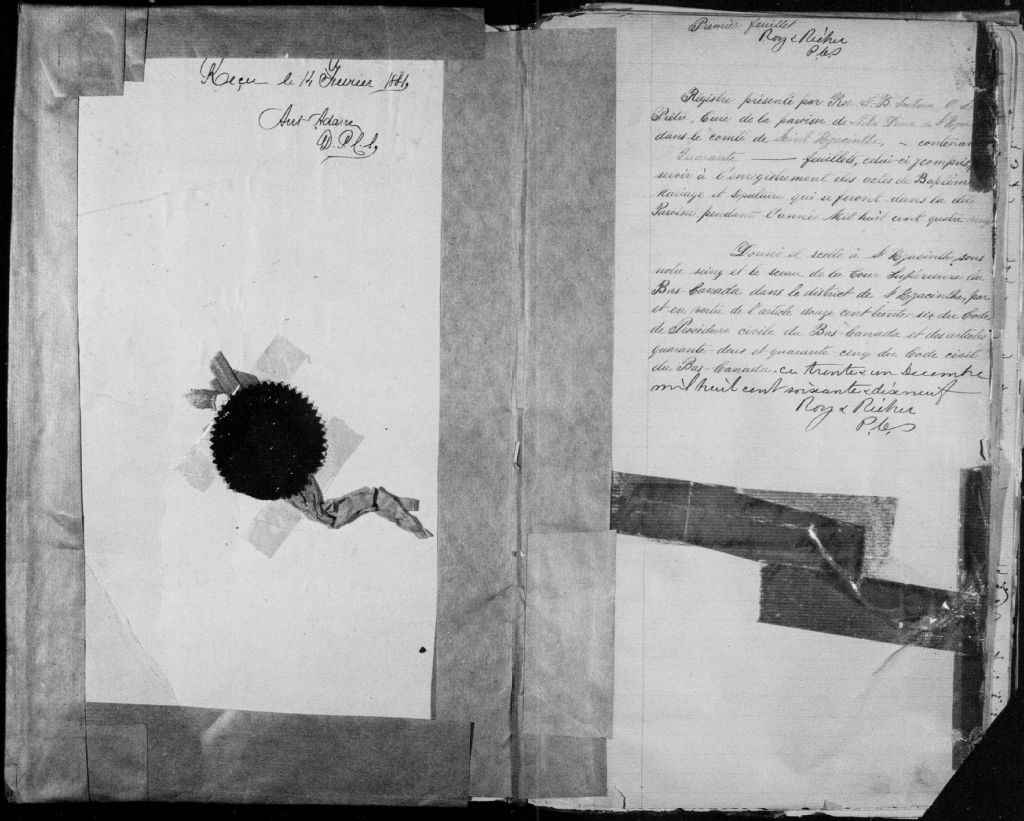 Reçu le 14 Février 1881,
Ant Adam
D. P. C. S,
Premier feuillet
Roy & Richer
P.C.S
Régistre présenté par Rev J. B.
Prêtre, Curé de la paroisse de Notre Dame de St
dans le comté de Saint Hyacinthe, - contenan
Quarante feuillets, celui-ci y compris,
servir à l'enregistrement des actes de Baptême
Mariage et Sépulture qui se feront dans la dite
Paroisse pendant l'année Mil huit cent quatre
Donné et scellé à St Hyacinthe, sous
notre seing et le sceau de la Cour Supérieure du
Bas Canada dans le district de St Hyacinthe, par
et en vertu de l'article douze cent trente-six du Code
de Procédure civile du Bas-Canada et des articles
quarante-deux et quarante-cinq du Code civil
du Bas-Canada - ce trente & un Decembre
mil huit cent soixante & dix neuf
Roy & Richer
P.C.S